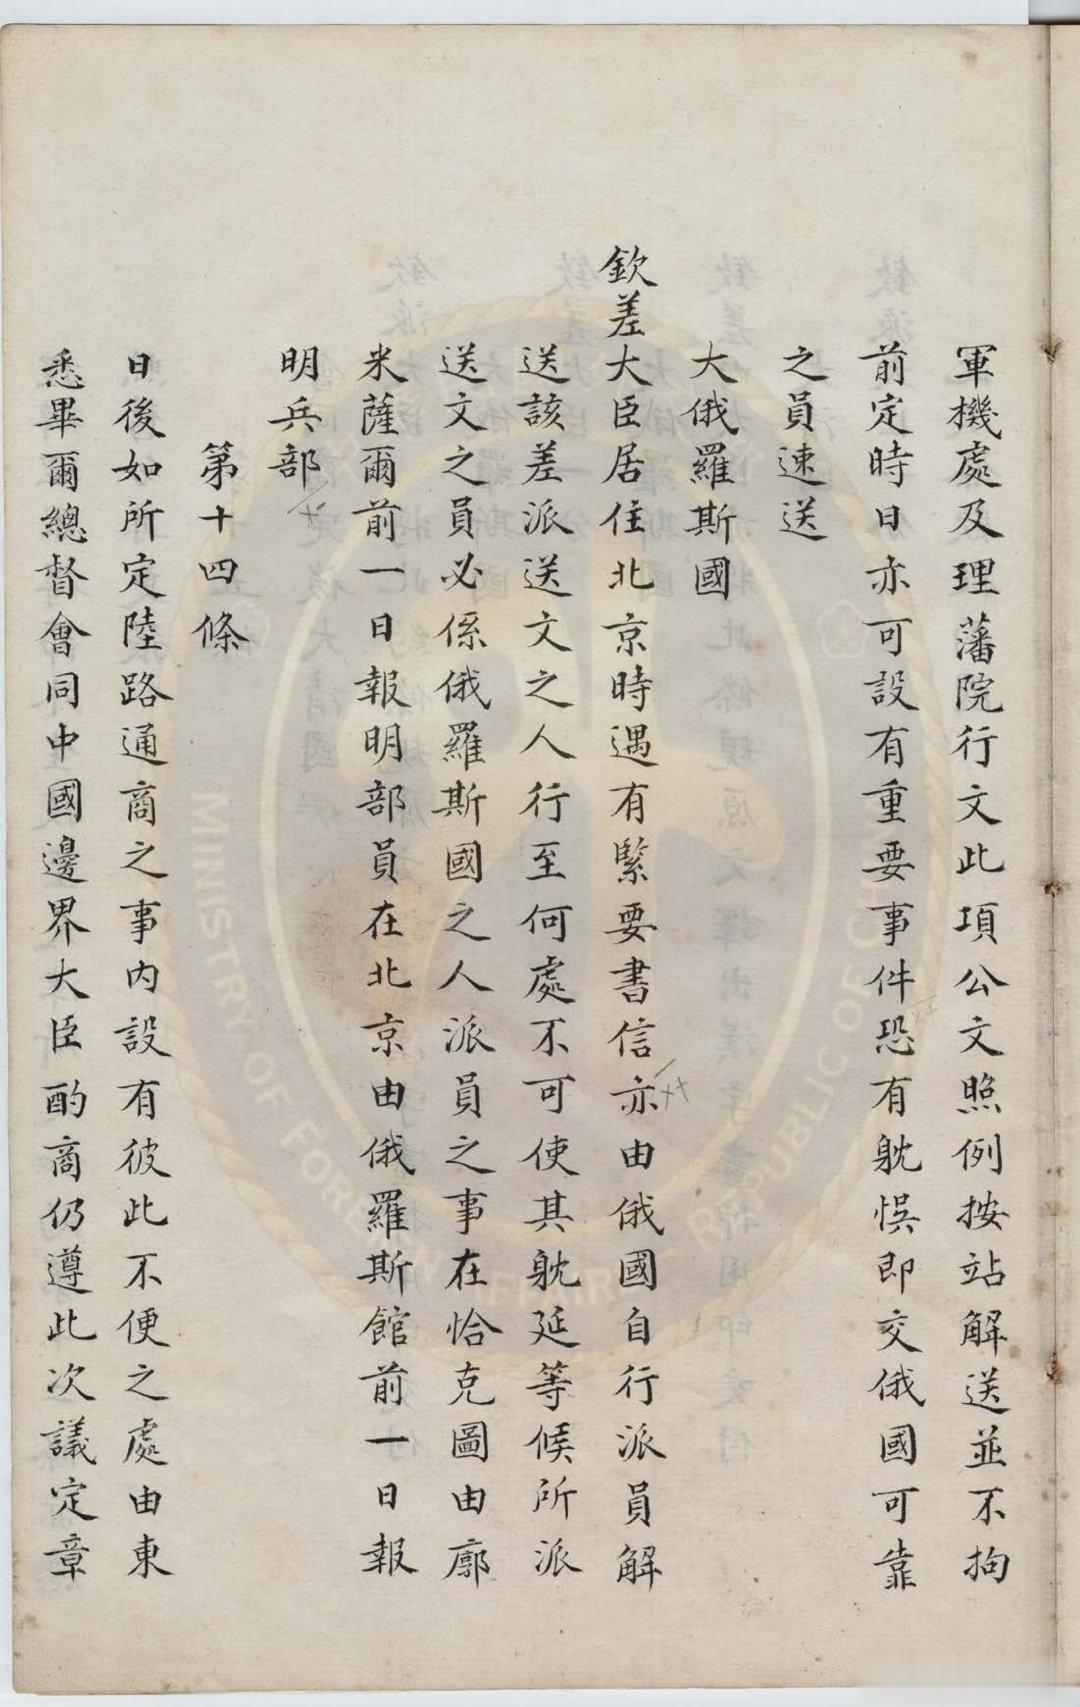 軍機處及理藩院行文此項公文照例按站解送並不拘
前定時日亦可設有重要事件恐有躭悞即交俄國可靠
之員速送
大俄羅斯國
欽差大臣居住北京時遇有緊要書信亦由俄國自行派員解
送該差派送文之人行至何處不可使其躭延等候所派
送文之員必係俄羅斯國之人派員之事在恰克圖由廓
米薩爾前一日報明部員在北京由俄羅斯館前一日報
明兵部
第十四條
日後如所定陸路通商之事內設有彼此不便之處由東
悉畢爾總督會同中國邊界大臣酌商仍遵此次議定章
MINISTRY OF FOREIGN AFFAIRS REPUBLIC OF CHINA